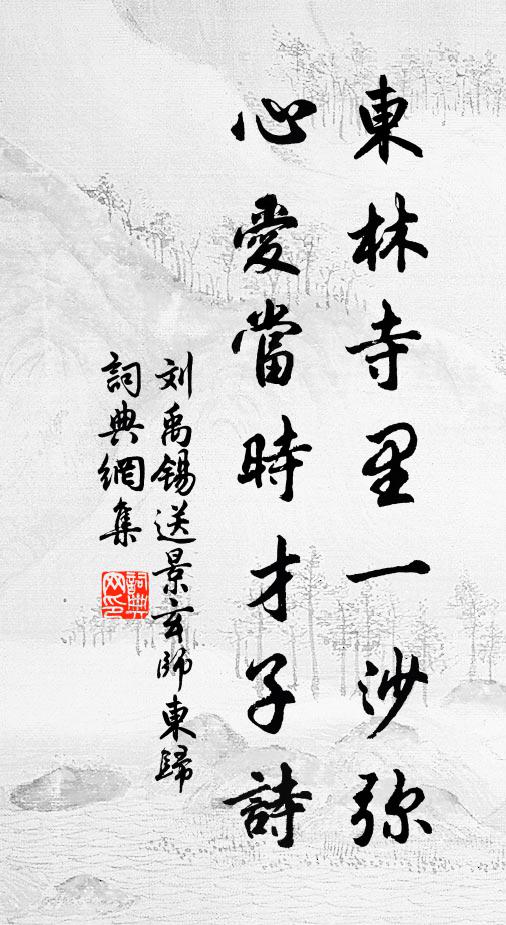 東林寺里一沙弥
心愛當時才子詩
刘禹锡送景玄師東歸
詞典網集
詞典網印